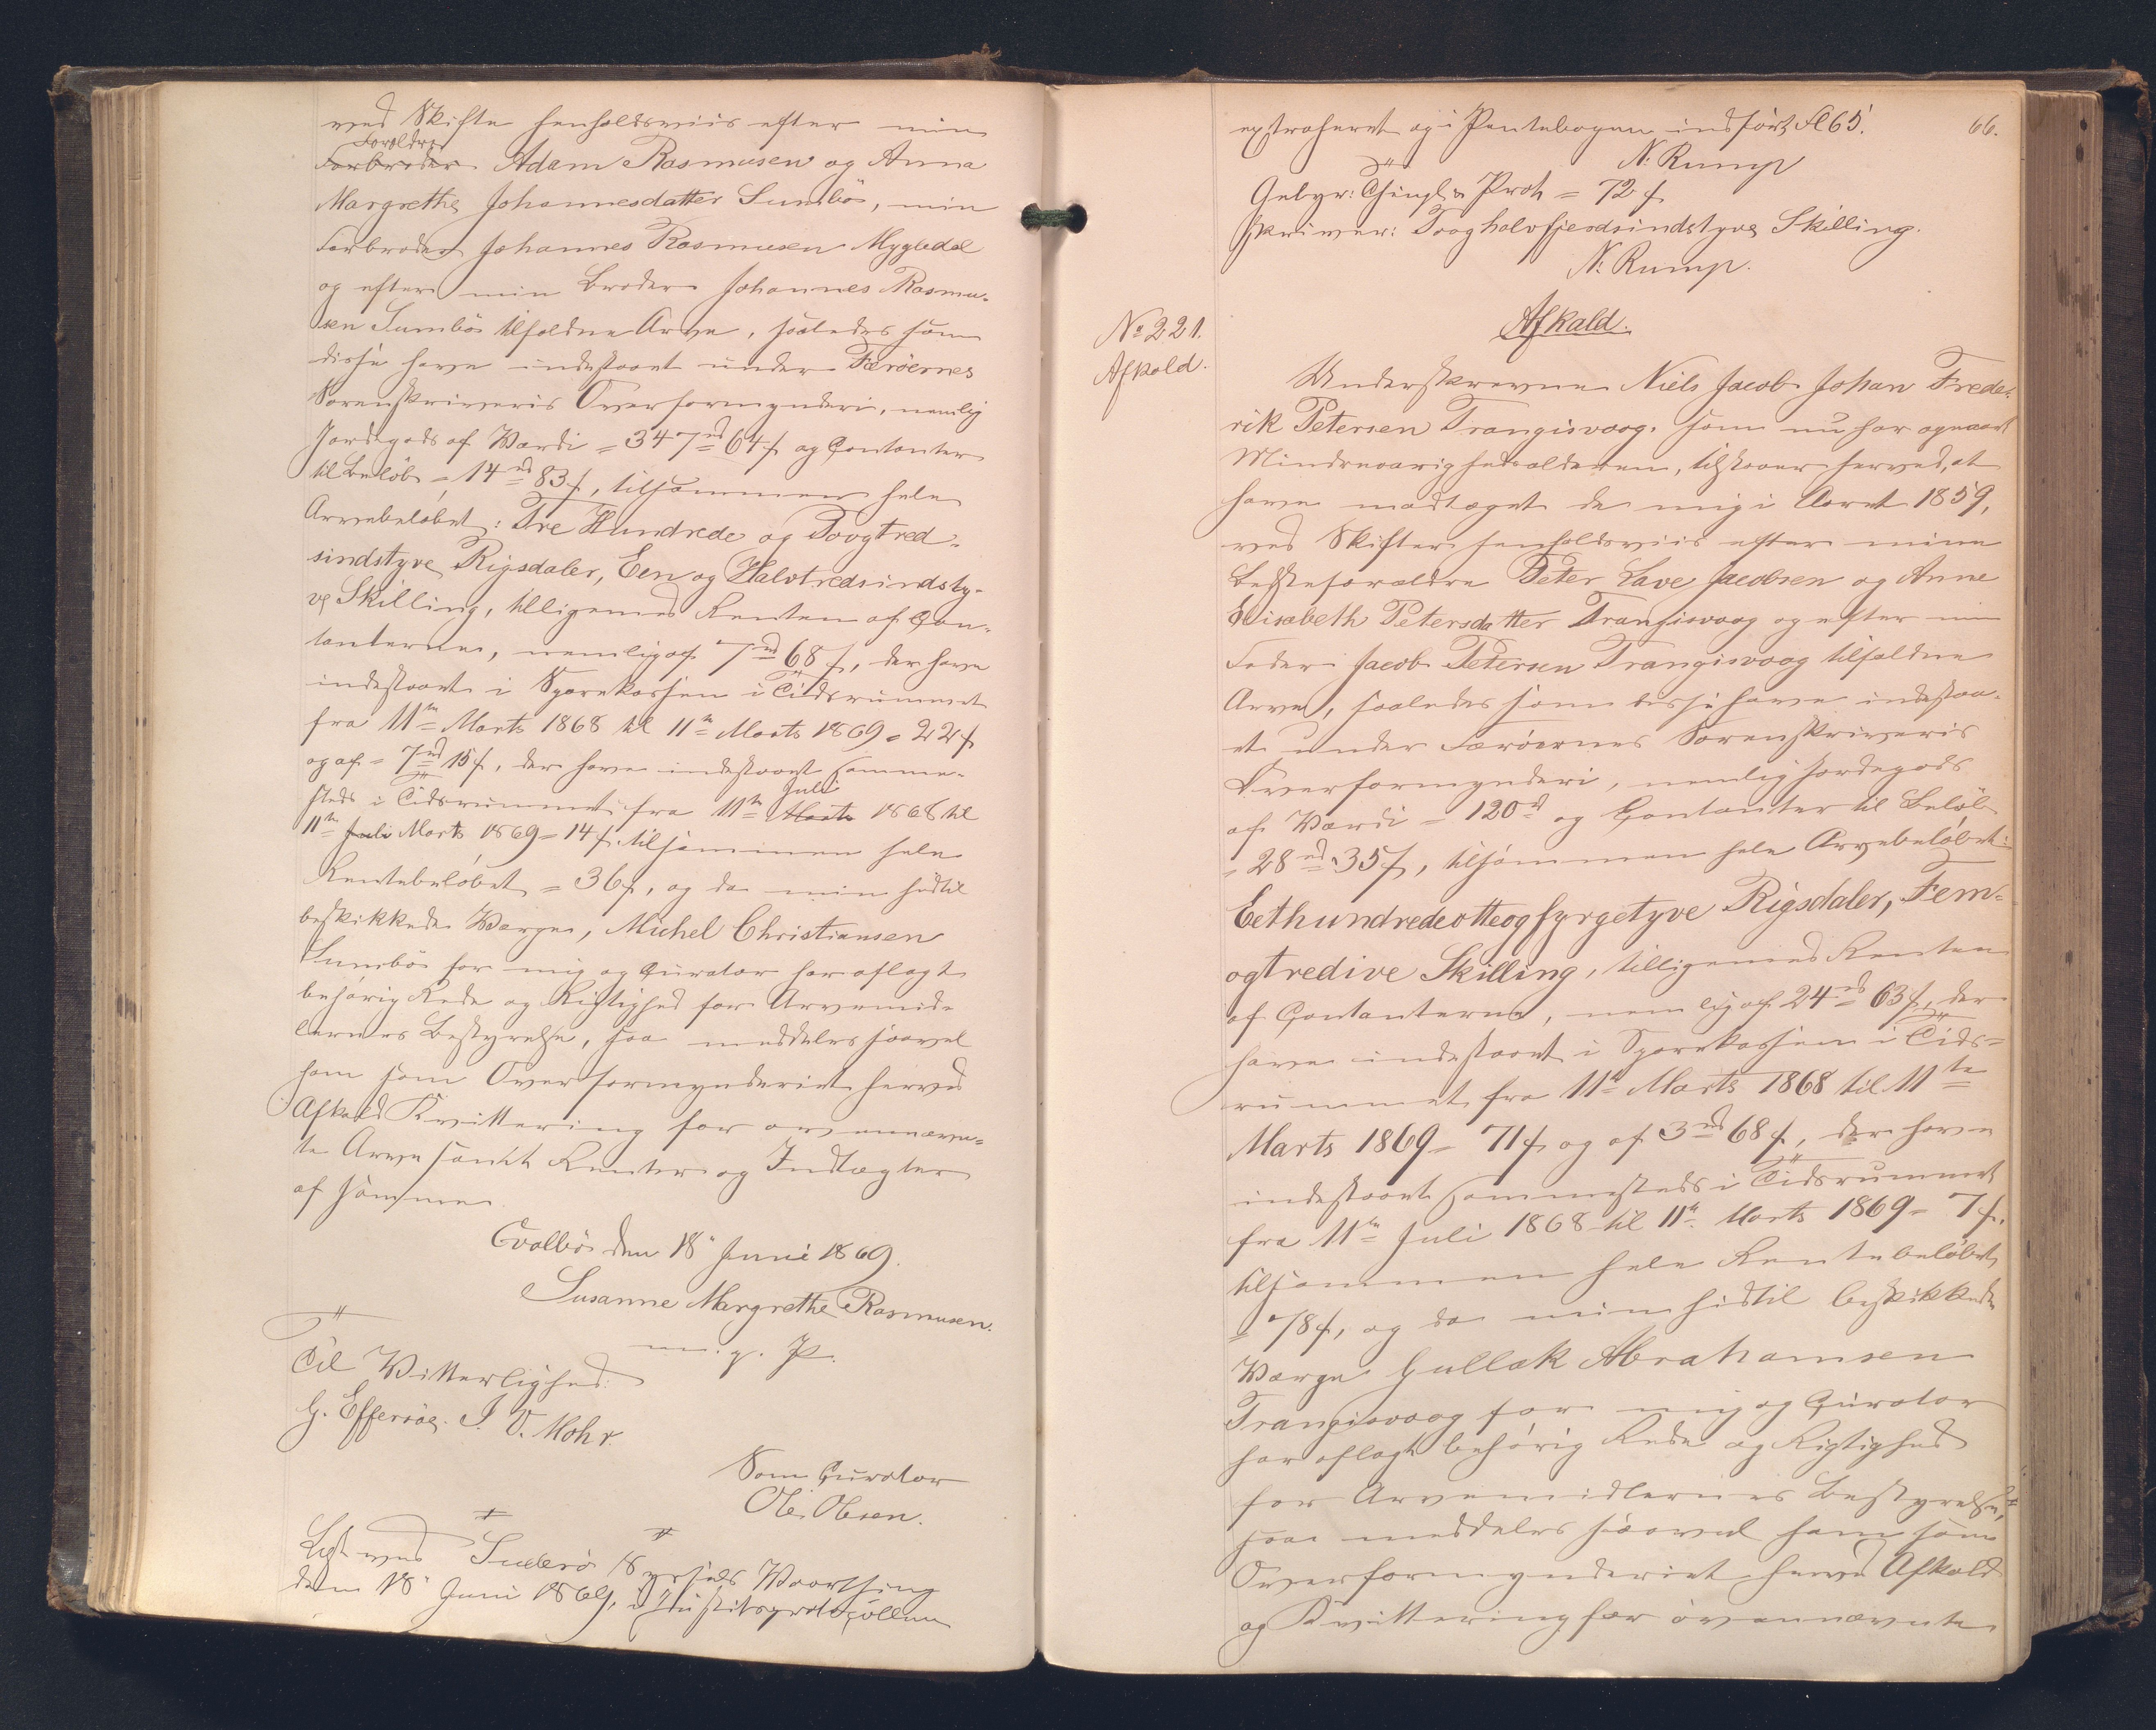 ved Skifte henholdsviis efter min
Forældre
Farbroder Adam Rasmusen og Anna
Margrethe Johannesdatter Sumbø, min
Farbroder Johannes Rasmusen Mygledal
og efter min Broder Johannes Rasmu-
sen Sumbø tilfaldne Arve, saaledes som
disse have indestaaet under Færøernes
Sorenskriveris Overformynderi, nemlig
Jordegods af Værdi = 347 rd 64 s og Contanter
til Beløb = 14 rd 83 s, tilsammen hele
Arvebeløbet: Tre Hundrede og Toogtred-
sindstyve Rigsdaler, Een og Halvtredsindsty-
ve Skilling, tilligemed Renten af Con-
tanterne, nemlig af 7 rd 68 s, der have
indestaaet i Sparekassen i Tidsrummet
fra 11te Marts 1868 til 11te Marts 1869 = 22 s
og af = 7 rd 15 s, der have indestaaet samme-
Juli
steds i Tidsrummet fra 11te Marts 1868 til
11te Juli Marts 1869 = 14 s, tilsammen hele
Rentebeløbet = 36 s, og da min hidtil
beskikkede Værge, Michel Christiansen
Sumbø for mig og Curator har aflagt
behørig Rede og Rigtighed for Arvemid-
lernes Bestyrelse, saa meddeles saavel
ham som Overformynderiet herved
Afkald Kvittering for ovennævn-
te Arve samt Renter og Indtægter
af samme
Qvalbø den 18 Juni 1869.
Susanne Margrethe Rasmusen.
m. p. P.
Til Vitterlighed:
G. Effersøe. J. V. Mohr.
Som Curator
Ole Olsen.
Læst ved Suderø Syssels Vaarthing
den 18 Juni 1869, i Justitsprotocollen
66.
extraheret og i Pantebogen indført Fol 65.
N. Rump
Gebyr: Thingl. & Prot = 72 s
skriver: Toog halvfjerdsindstyve Skilling.
N. Rump.
No 221.
Afkald.
Afkald.
Underskrevne Niels Jacob Johan Frede-
rik Petersen Trangisvaag, som nu har opnaaet
Mindreaarighedsalderen, tilstaaer herved, at
have modtaget de mig i Aaret 1859,
ved Skifter henholdsviis efter mine
Bedsteforældre Peter Lave Jacobsen og Anne
Elisabeth Petersdatter Trangisvaag og efter min
Fader Jacob Petersen Trangisvaag tilfaldne
Arve, saaledes som disse have indestaa-
et under Færøernes Sorenskriveris
Overformynderi, nemlig Jordegods
af Værdi = 120 rd og Contanter til Beløb
= 28 rd 35 s, tilsammen hele Arvebeløbet:
Eethundredeotteogfyrgetyve Rigsdaler, Fem-
ogtredive Skilling, tilligemed Renten
af Contanterne, nemlig af 24 rd 63 s, der
have indestaaet i Sparekassen i Tids-
rummet fra 11te Marts 1868 til 11te
Marts 1869 = 71 s og af 3 rd 68 s, der have
indestaaet sammesteds i Tidsrummet
fra 11te Juli 1868 til 11te Marts 1869 = 7 s.
tilsammen hele Rentebeløbet
= 78 s, og da min hidtil beskikkede
Værge Gullak Abrahamsen
Trangisvaag for mig og Curator
har aflagt behørig Rede og Rigtighed
for Arvemidlernes Bestyrelse,
saa meddeles saavel ham som
Overformynderiet herved Afkald
og Kvittering for ovennævnte